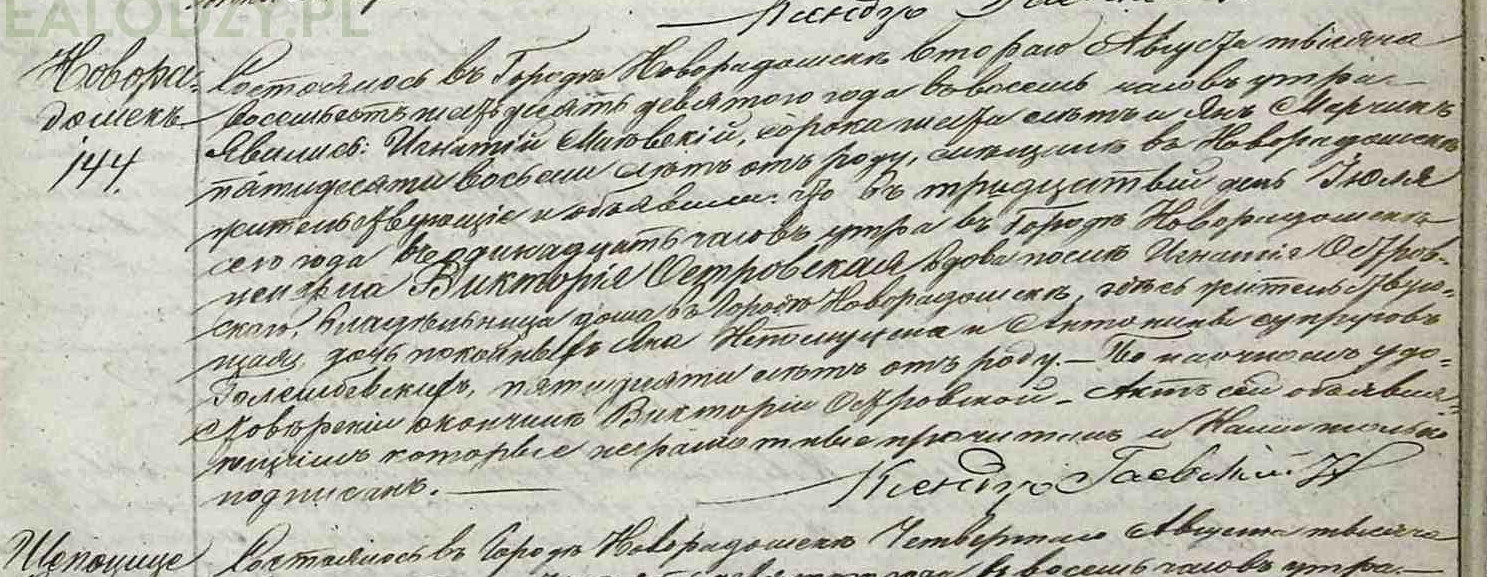 EALODZY.PL
Ксендзъ
Новора-
домскъ
144.
Состоялось въ Городѣ Новорадомскѣ втораго Августа тысяча
восемьсотъ шестьдесятъ девятого года въ восемь часовъ утра.—
Явились: Игнатій Маковскій, сорока шести лѣтъ и Янъ Марчикъ
пятидесяти восьми лѣтъ отъ роду, въ Новорадомскѣ
жительствующіе и объявили: что въ тридцатый день Іюля
сего года въ одинадцать часовъ утра въ Городѣ Новорадомскѣ
Викторія Островская, вдова послѣ Игнатія Остров-
ского, владѣльница дома въ Городѣ Новорадомскѣ, здѣсь жительствую-
щая, дочь покойныхъ Яна Непомуцена и Антонины супруговъ
пятидесяти лѣтъ отъ роду. — По наочномъ удо-
стовѣреніи о кончинѣ Викторіи Островской — Актъ сей объявля-
ющимъ которые неграмотные прочитанъ и Нами только
подписанъ. —
Ксендзъ Гаевскій
Состоялось въ Городѣ Новорадомскѣ Четвертаго Августа тысяча
въ восемь часовъ утра —